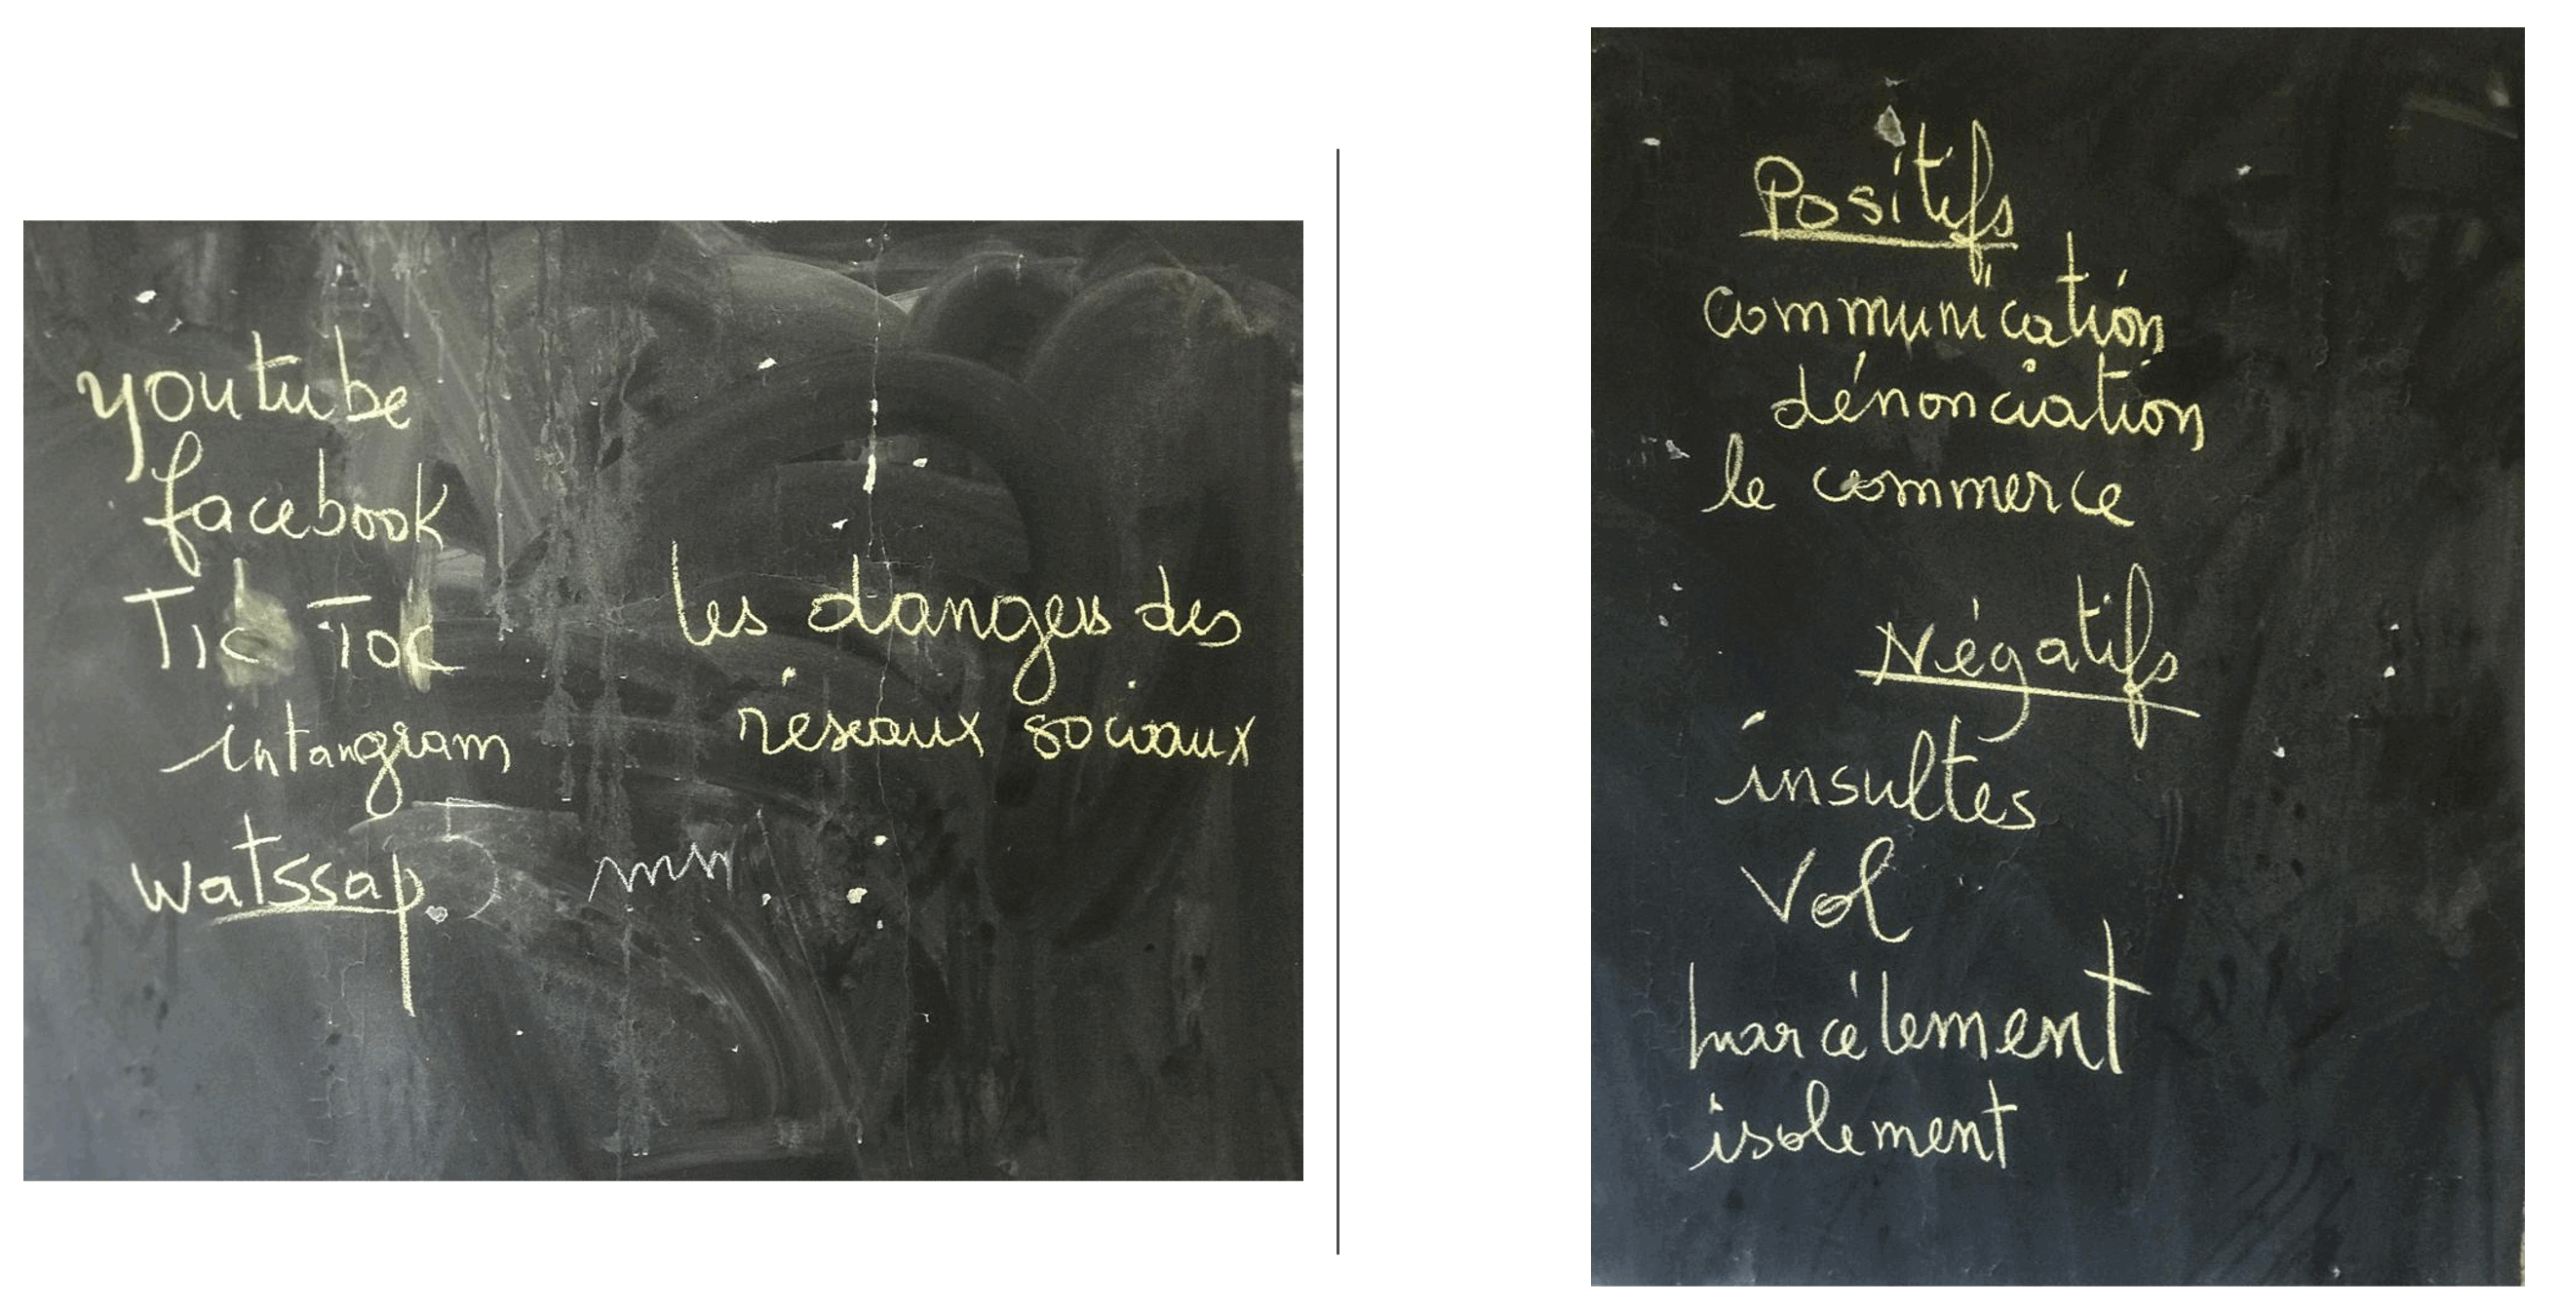 youtube
facebook
Tic Toc
intangram
watssap
les dangers des
réseaux sociaux
Positifs
communication
dénonciation
le commerce
Négatifs
insultes
Vol
harcèlement
isolement